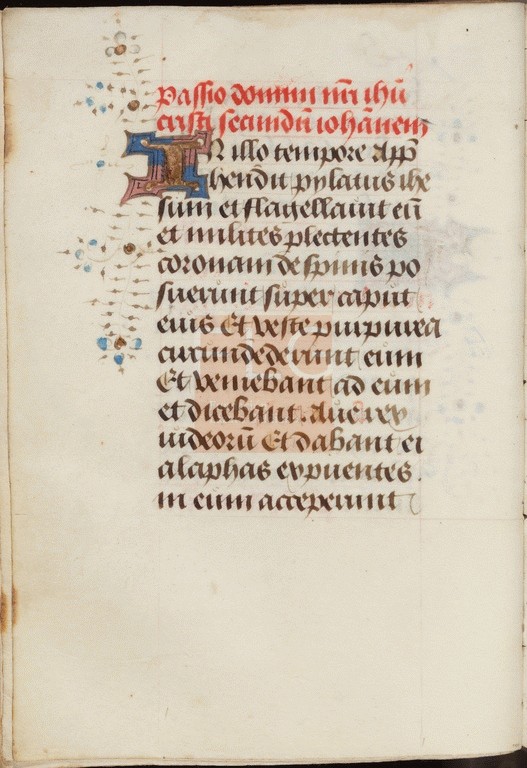 Passio domini nr̄i ihū
cristi secundū iohānem
IN illo tempore App̄
hendit pylatus ihe
sum et flagellauit eū
et milites plectentes
coronam de spinis po
suerunt super caput
eius Et veste purpurea
circundederunt eum
Et veniebant ad eum
et dicebant. Aue rex
iudeorū Et dabant ei
alaphas expuentes.
in eum acceperunt